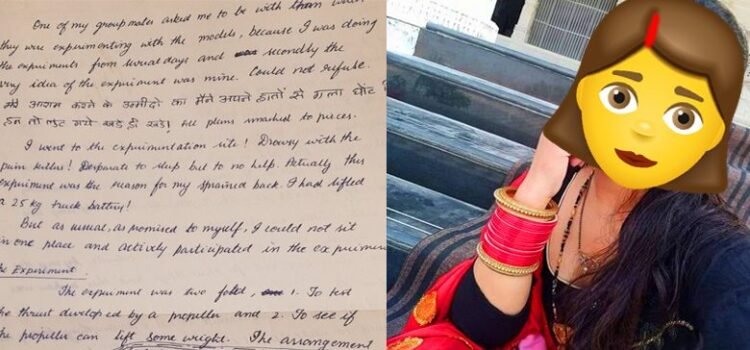 One of my groupmates asked me to be with them when
they were experimenting with the models, because I was doing
the experiments from several days and secondly the
very idea of the experiment was mine. Could not refuse.
मेरे आराम करने के उम्मीदों का मैंने अपने हातों से गला घोंट
हम तो लुट गये खडे ही खडे! All plans smashed to pieces.
I went to the experimentation site! Drowsy with the
pain killers! Desparate to sleep but to no help. Actually this
experiment was the reason for my sprained back. I had lifted
a 25 kg truck battery!
But as usual, as promised to myself, I could not sit
in one place and actively participated in the experiment
The Experiment
The experiment was two fold, 1. To test
the thrust developed by a propeller and 2. To see if
the propeller can lift some weight. The arrangement